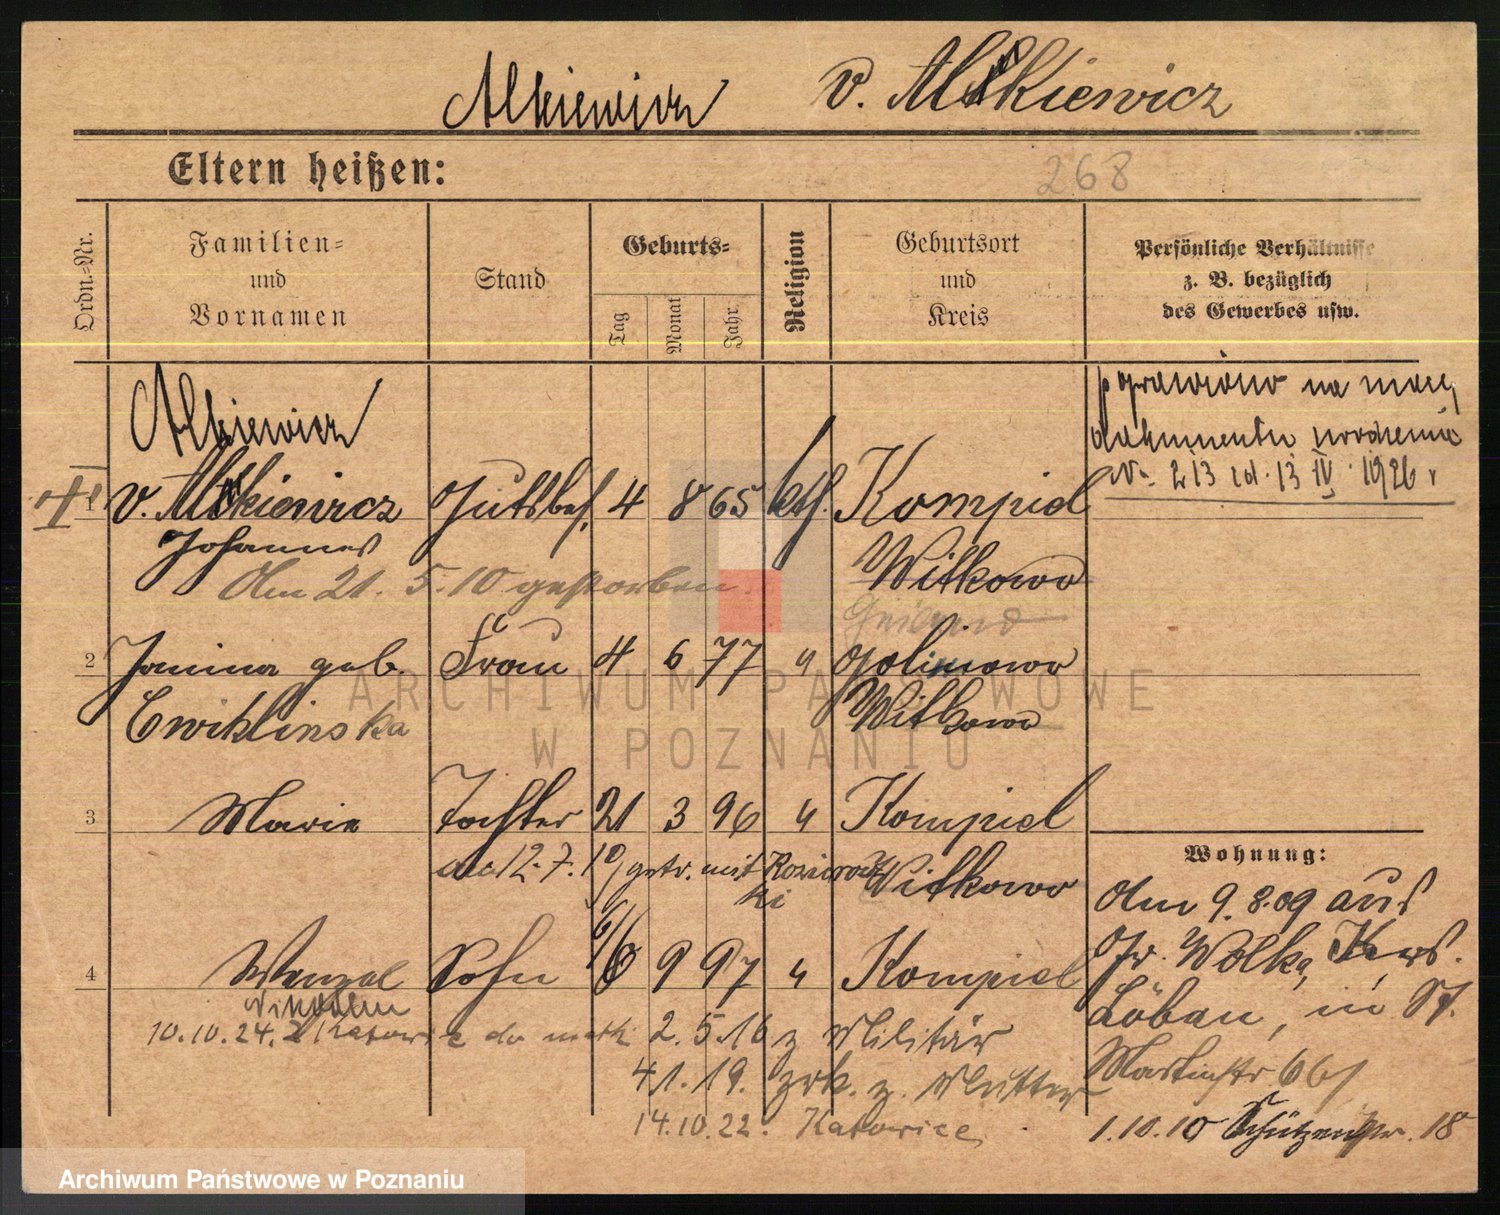 Alkiewicz v. Alkiewicz
Eltern heißen:
268
Ordn.-Nr.
Familien-
und
Vornamen
Stand
Geburts-
Tag
Monat
Jahr
Religion
Geburtsort
und
Kreis
Persönliche Verhältnisse
z. B. bezüglich
des Gewerbes usw.
Alkiewicz
poprawiono na mocy
dokumentu urodzenia
Nr 213 z d. 13 IV 1926 r
1 v. Alkiewicz Gutsbes. 4 8 65 kth. Kompiel
Johannes Witkowo
Am 21. 5. 10 gestorben
2 Janina geb. Frau 4 6 77 " Golimowo
Cwiklinska Witkowo
3 Marie Tochter 21 3 96 " Kompiel
am 12. 7. 19 getr. mit Rozierowski Witkowo
4 Wenzel Sohn 6 9 97 " Kompiel
10.10.24. z Katowic do matki 2. 5. 16 z Militär
4 1. 19. zrk. z. Mutter
14.10.22. Katowice
Wohnung:
Am 9. 8. 09 aus
Gr. Wolka, Krs.
Löbau, in St.
Martinstr 66
1. 10. 10 Schützenstr. 18